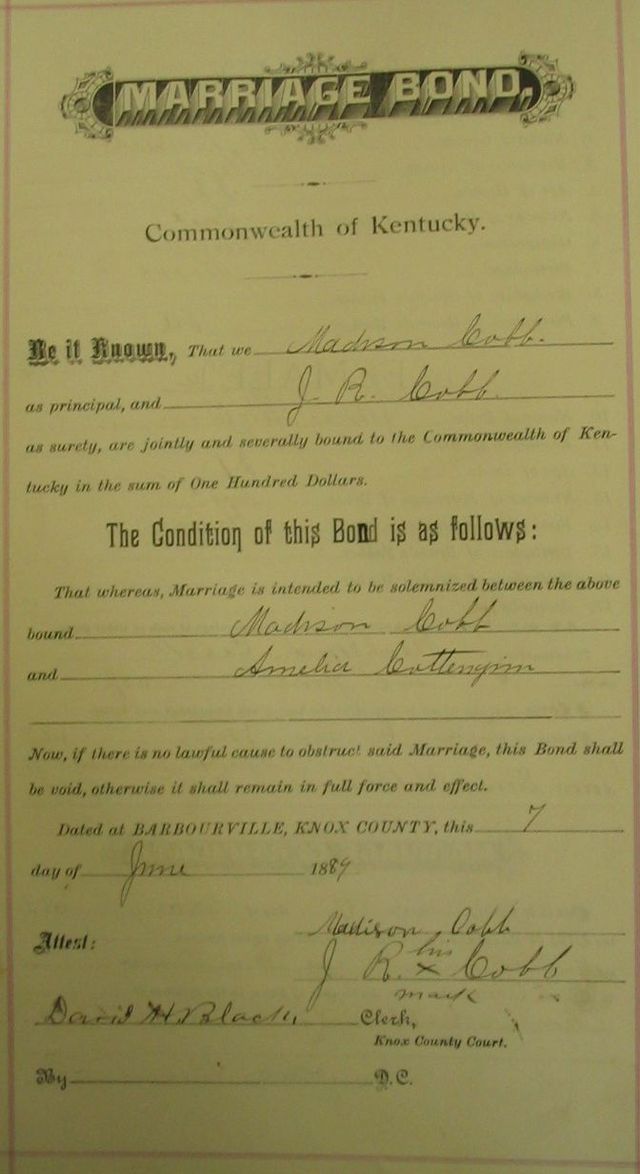 MARRIAGE BOND.
Commonwealth of Kentucky.
Be it Known, That we Madison Cobb.
as principal, and J. R. Cobb.
as surety, are jointly and severally bound to the Commonwealth of Ken-
tucky in the sum of One Hundred Dollars.
The Condition of this Bond is as follows:
That whereas, Marriage is intended to be solemnized between the above
bound Madison Cobb
and Amelia Cottengim
Now, if there is no lawful cause to obstruct said Marriage, this Bond shall
be void, otherwise it shall remain in full force and effect.
Dated at BARBOURVILLE, KNOX COUNTY, this 7
day of June 1889
Madison Cobb
Attest:
his
J R. x Cobb
mark
David H Black, Clerk,
Knox County Court.
By D. C.